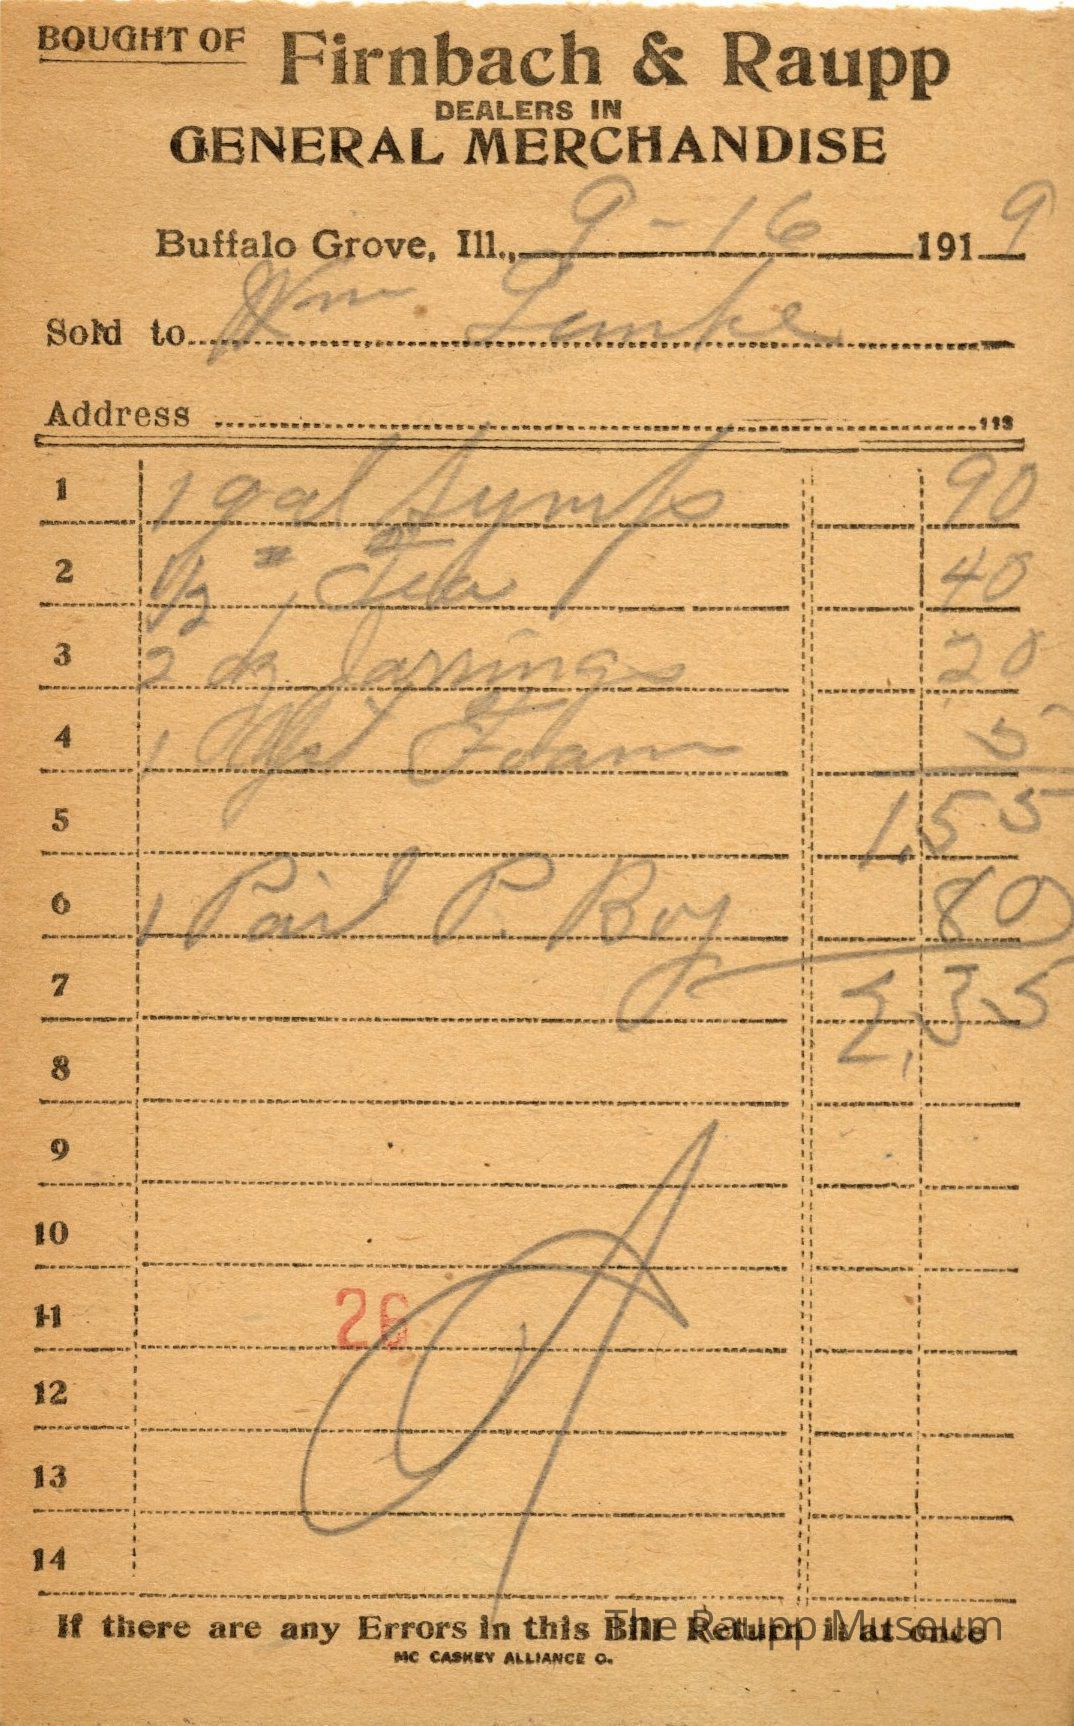 BOUGHT OF Firnbach & Raupp
DEALERS IN
GENERAL MERCHANDISE
Buffalo Grove, Ill., 9-16 1919
Sold to Wm Lemke
Address
1 1 gal Syrup 90
2 1/2 # Tea 40
3 2 dz Jar rings 20
4 1 Foam 5
5 1.55
6 1 Pail P. Boy 80
7 2.35
8
9
10
11 26
12
13
14
If there are any Errors in this Bill Return it at once
The Raupp Museum
MC CASKEY ALLIANCE O.